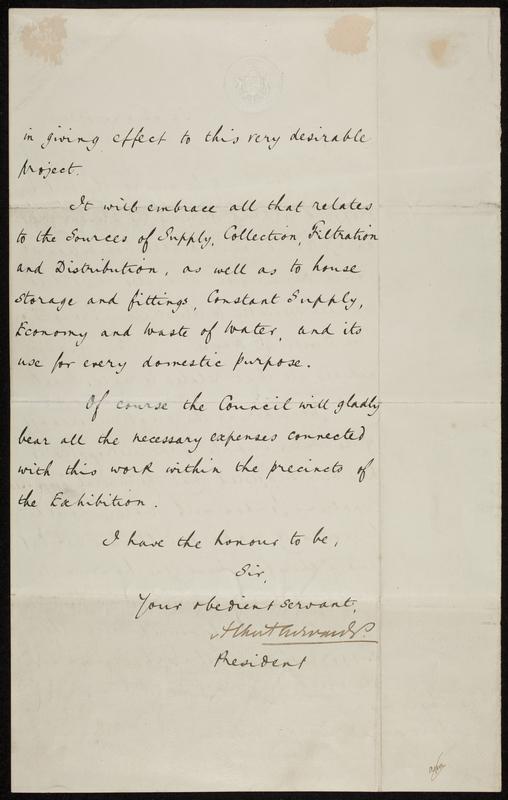 in giving effect to this very desirable
project.
It will embrace all that relates
to the Sources of Supply, Collection, Filtration
and Distribution, as well as to house
storage and fittings, Constant Supply,
Economy and Waste of Water, and its
use for every domestic purpose.
Of course the Council will gladly
bear all the necessary expenses connected
with this work within the precincts of
the Exhibition.
I have the honour to be,
Sir,
Your obedient servant,
Albert Edward P.
President